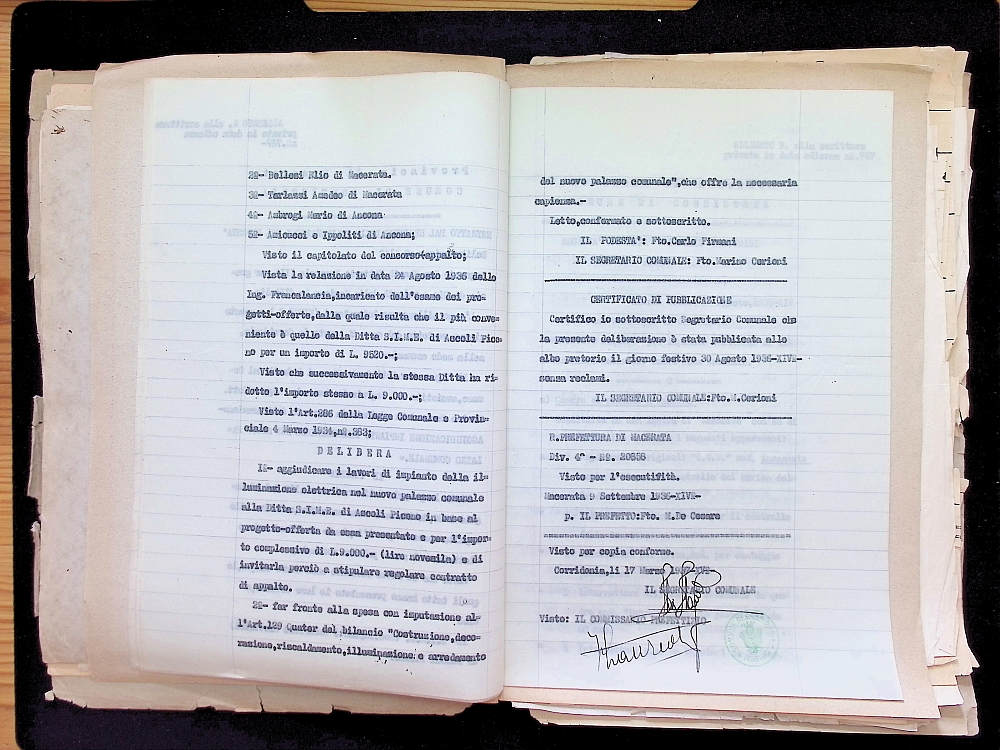 2º- Bellesi Elio di Macerata.
3º- Tarlazzi Amedeo di Macerata
4º- Ambrogi Mario di Ancona
5º- Amicucci e Ippoliti di Ancona;
Visto il capitolato del concorso-appalto;
Vista la relazione in data 24 Agosto 1936 dello
Ing. Francalancia,incaricato dell'esame dei pro=
getti-offerte,dalla quale risulta che il più conve=
niente è quello della Ditta S.I.M.E. di Ascoli Pice=
no per un importo di L. 9520.-;
Visto che successivamente la stessa Ditta ha ri=
dotto l'importo stesso a L. 9.000.-;
Visto l'Art.286 della Legge Comunale e Provin=
ciale 4 Marzo 1934,nº.383;
D E L I B E R A
1º- aggiudicare i lavori di impianto della il=
luminazione elettrica nel nuovo palazzo comunale
alla Ditta S.I.M.E. di Ascoli Piceno in base al
progetto-offerta da essa presentato e per l'impor=
to complessivo di L.9.000.- (lire novemila) e di
invitarla perciò a stipulare regolare contratto
di appalto.
2º- far fronte alla spesa con imputazione al=
l'Art.129 Quater del bilancio "Costruzione,deco=
razione,riscaldamento,illuminazione e arredamento
del nuovo palazzo comunale",che offre la necessaria
capienza.-
Letto,confermato e sottoscritto.
IL PODESTA': Fto.Carlo Firmani
IL SEGRETARIO COMUNALE: Fto.Marino Cerioni
CERTIFICATO DI PUBBLICAZIONE
Certifico io sottoscritto Segretario Comunale che
la presente deliberazione è stata pubblicata allo
albo pretorio il giorno festivo 30 Agosto 1936-XIVº-
senza reclami.
IL SEGRETARIO COMUNALE:Fto.M.Cerioni
R.PREFETTURA DI MACERATA
Div. 4º - Nº. 20858
Visto per l'esecutifith.
Macerata 9 Settembre 1936-XIVº-
p. IL PREFETTO:Fto. M.De Cesare
Visto per copia conforme.
Corridonia,li 17 Marzo
IL SEGRETARIO COMUNALE
Visto: IL COMMISSARIO PREFETTIZIO